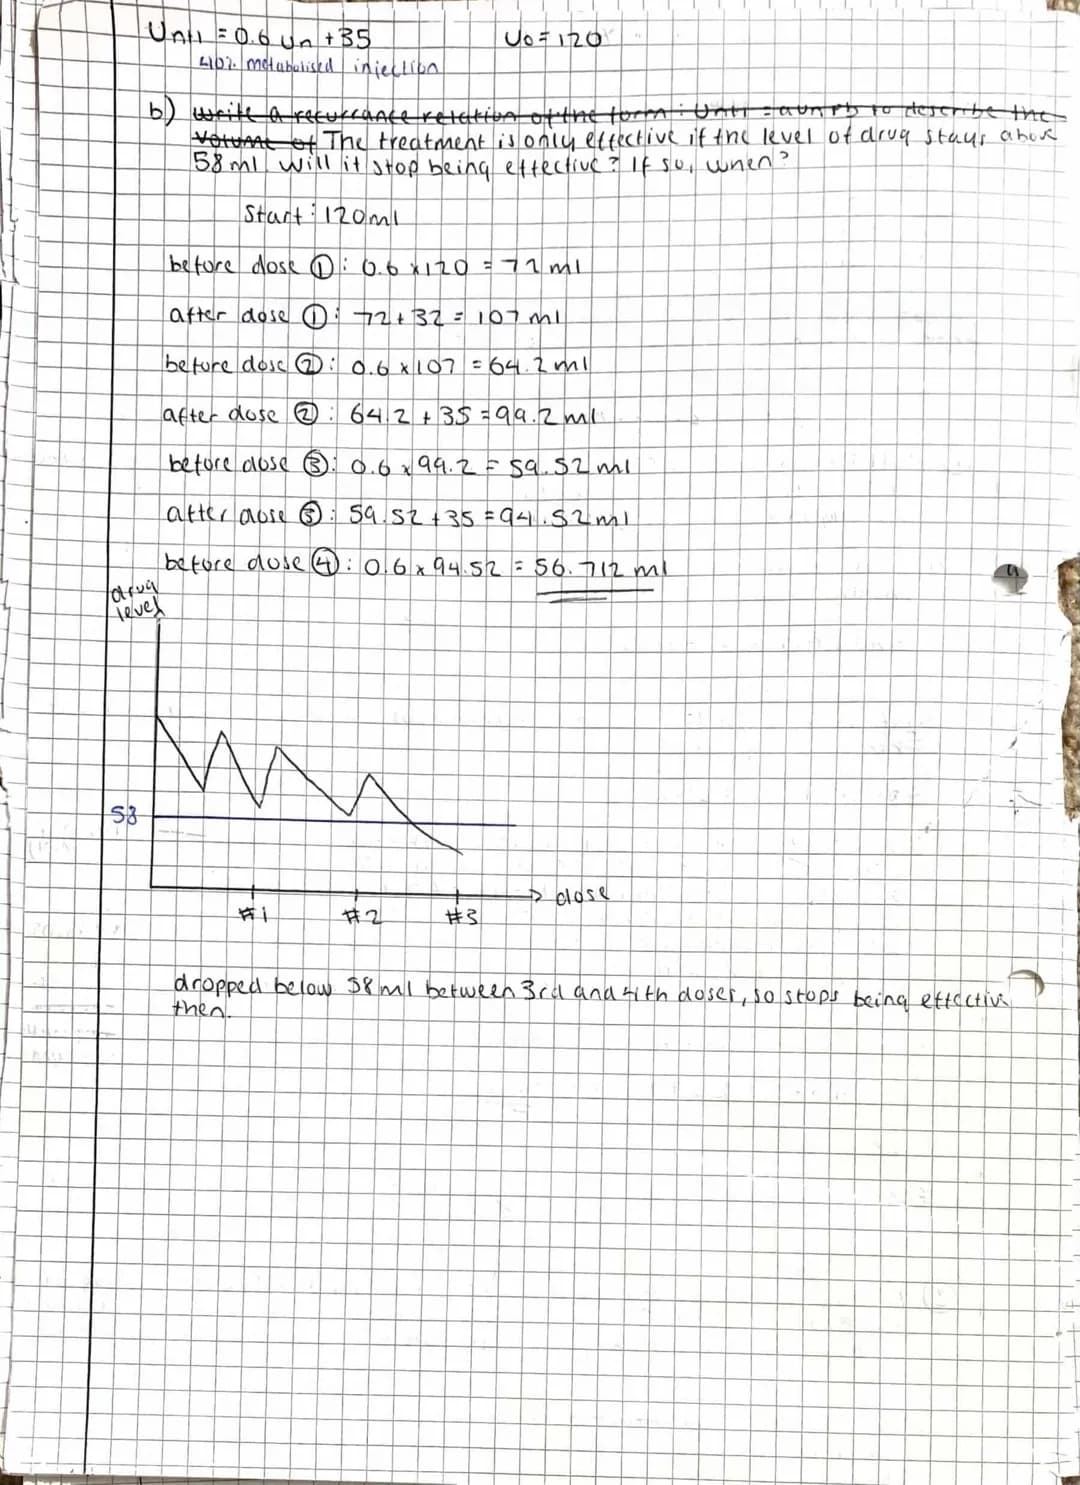 Un+1 = 0.6 Un + 35 U0 = 120
40% metabolised injection
b) write a recurrance relation of the form : Un+1 = aun + b to describe the
volume of The treatment is only effective if the level of drug stays above
58ml. Will it stop being effective? If so, when?
Start : 120ml
before dose ① : 0.6 × 120 = 72ml
after dose ① : 72 + 32 = 107ml
before dose ② : 0.6 × 107 = 64.2ml
after dose ② : 64.2 + 35 = 99.2ml
before dose ③ : 0.6 × 99.2 = 59.52ml
after dose ③ : 59.52 + 35 = 94.52ml
before dose ④ : 0.6 × 94.52 = 56.712 ml
drug
level
58
dose
#1 #2 #3
dropped below 58ml between 3rd and 4th doses, so stops being effective
then.